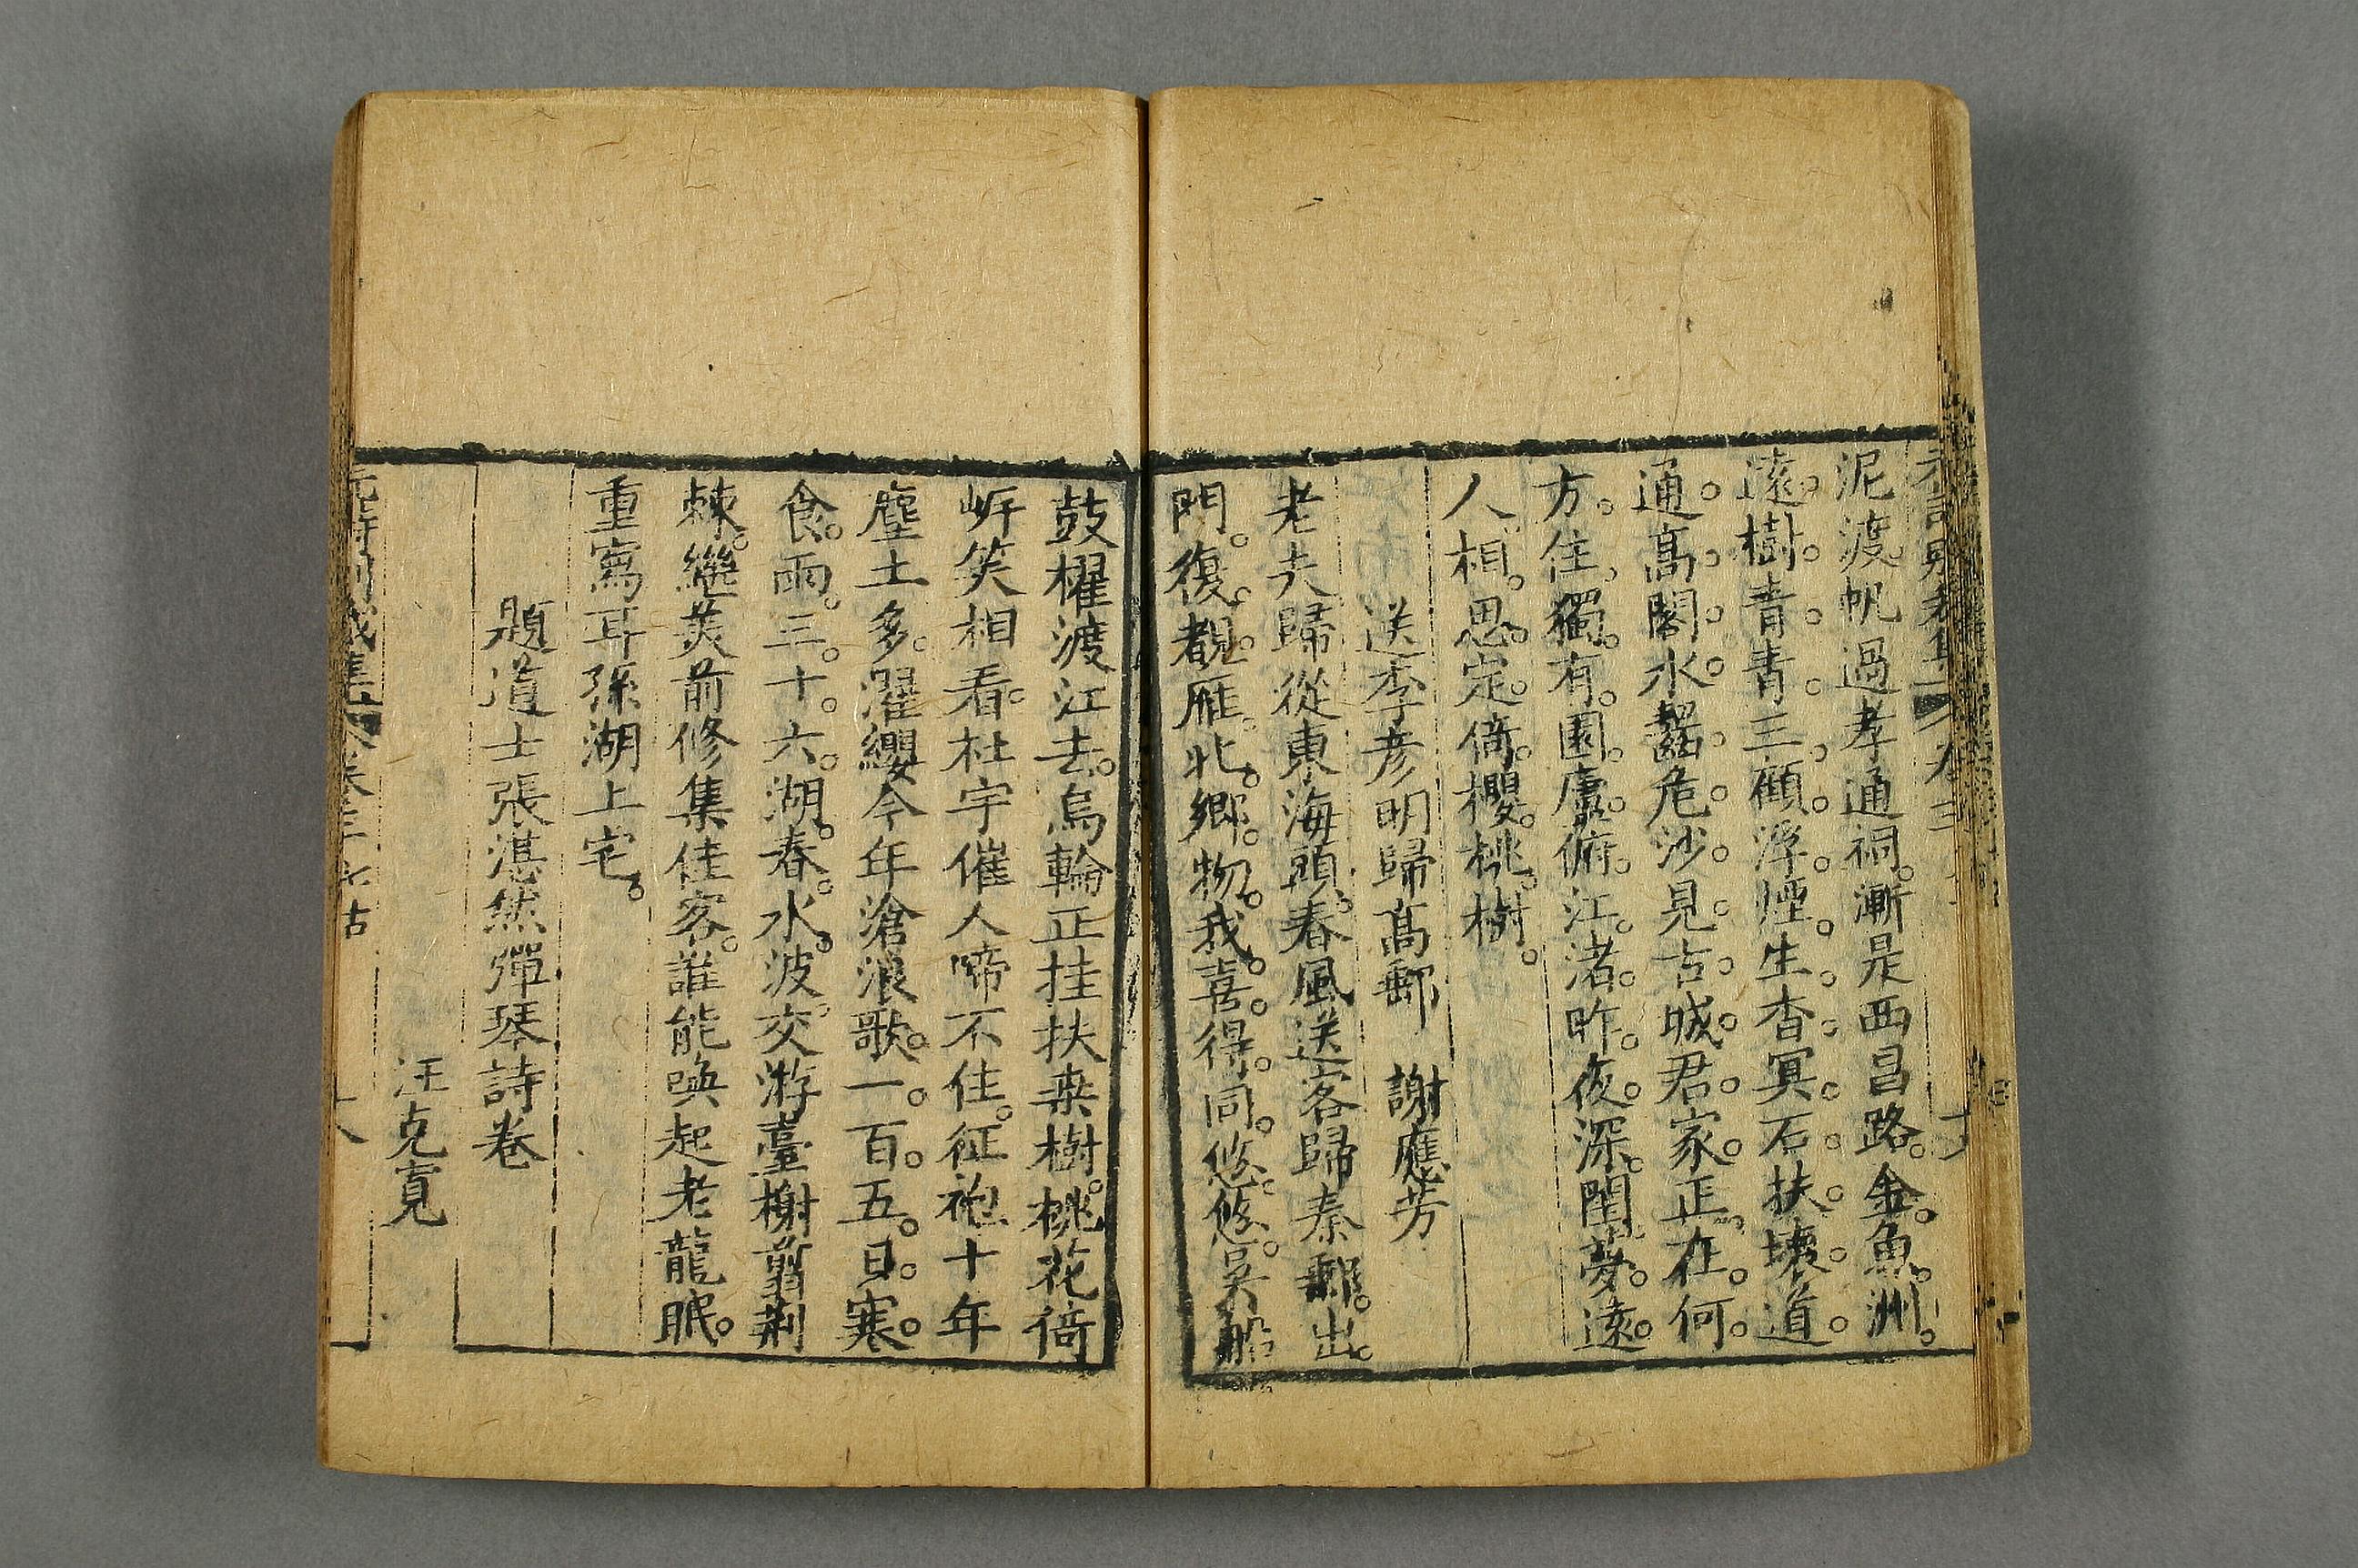 泥渡帆過孝通祠漸是西昌路金魚洲
遠樹青青三顧浮煙生杳冥石扶壞道
通高閣水齧危沙見古城君家正在何
方住獨有園廬俯江渚昨夜深閨夢遠
人相思定倚櫻桃樹
送李彥明歸高郵 謝應芳
老夫歸從東海頭春風送客歸秦郵出
門復覩雁北鄉物我喜得同悠悠吳船
鼓櫂渡江去烏輪正挂扶桒樹桃花倚
岍笑相看杜宇催人啼不住征袍十年
塵土多濯纓今年滄浪歌一百五日寒
食雨三十六湖春水波交游臺榭翦荆
棘繼美前修集佳客誰能喚起老龍眠
重寫耳孫湖上宅
題道士張湛然彈琴詩卷
汪克寬
卷三 七古